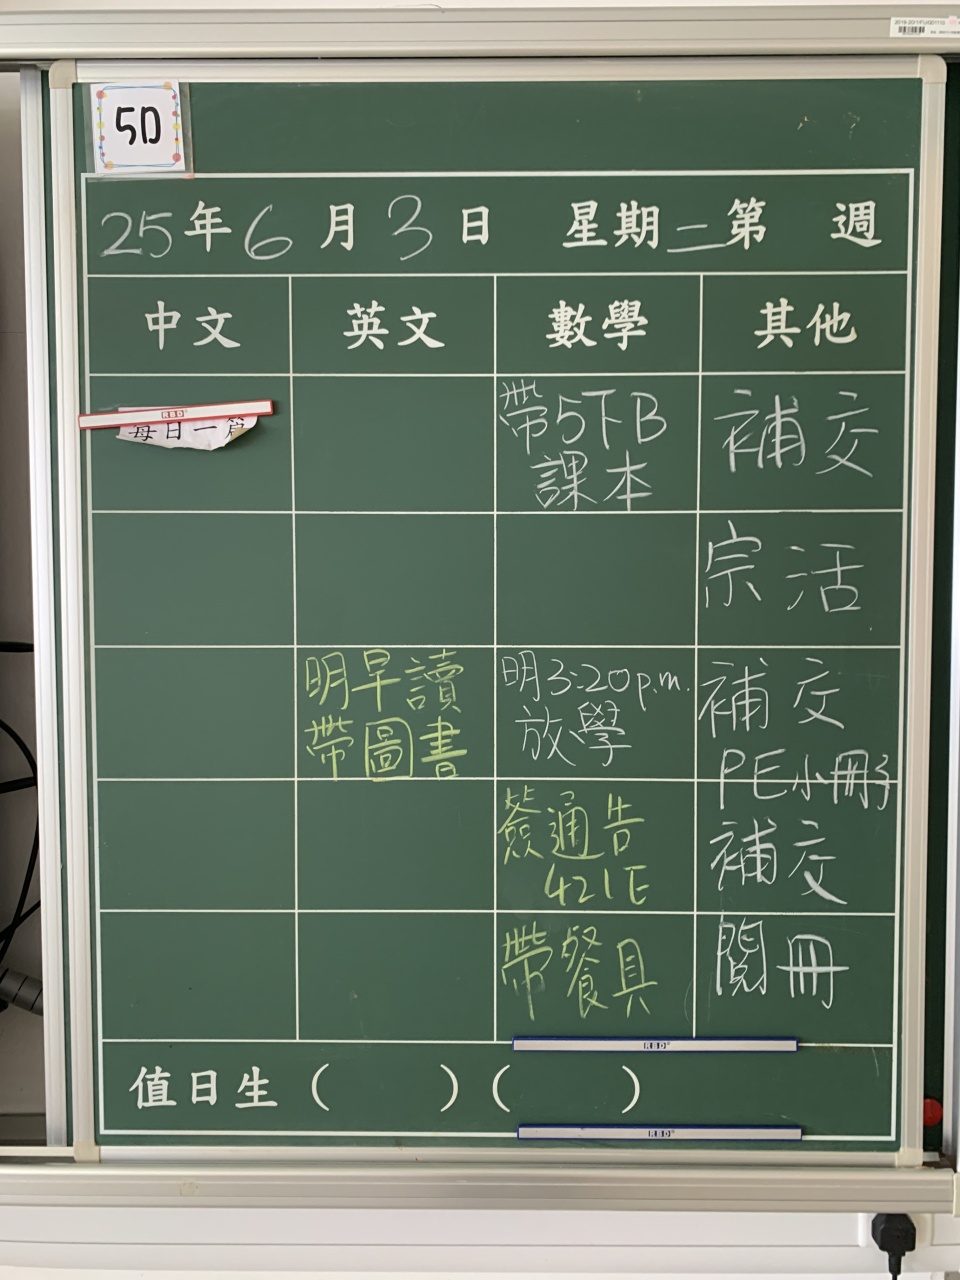 5D
25年6月3日 星期二第 週
中文 英文 數學 其他
RBD
每日一篇
帶5下B
課本
補交
宗活
明早讀
帶圖書
明3:20p.m.
放學
補交
PE小冊子
簽通告
421E
補交
帶餐具
閱冊
RBD
值日生( )( )
RBD